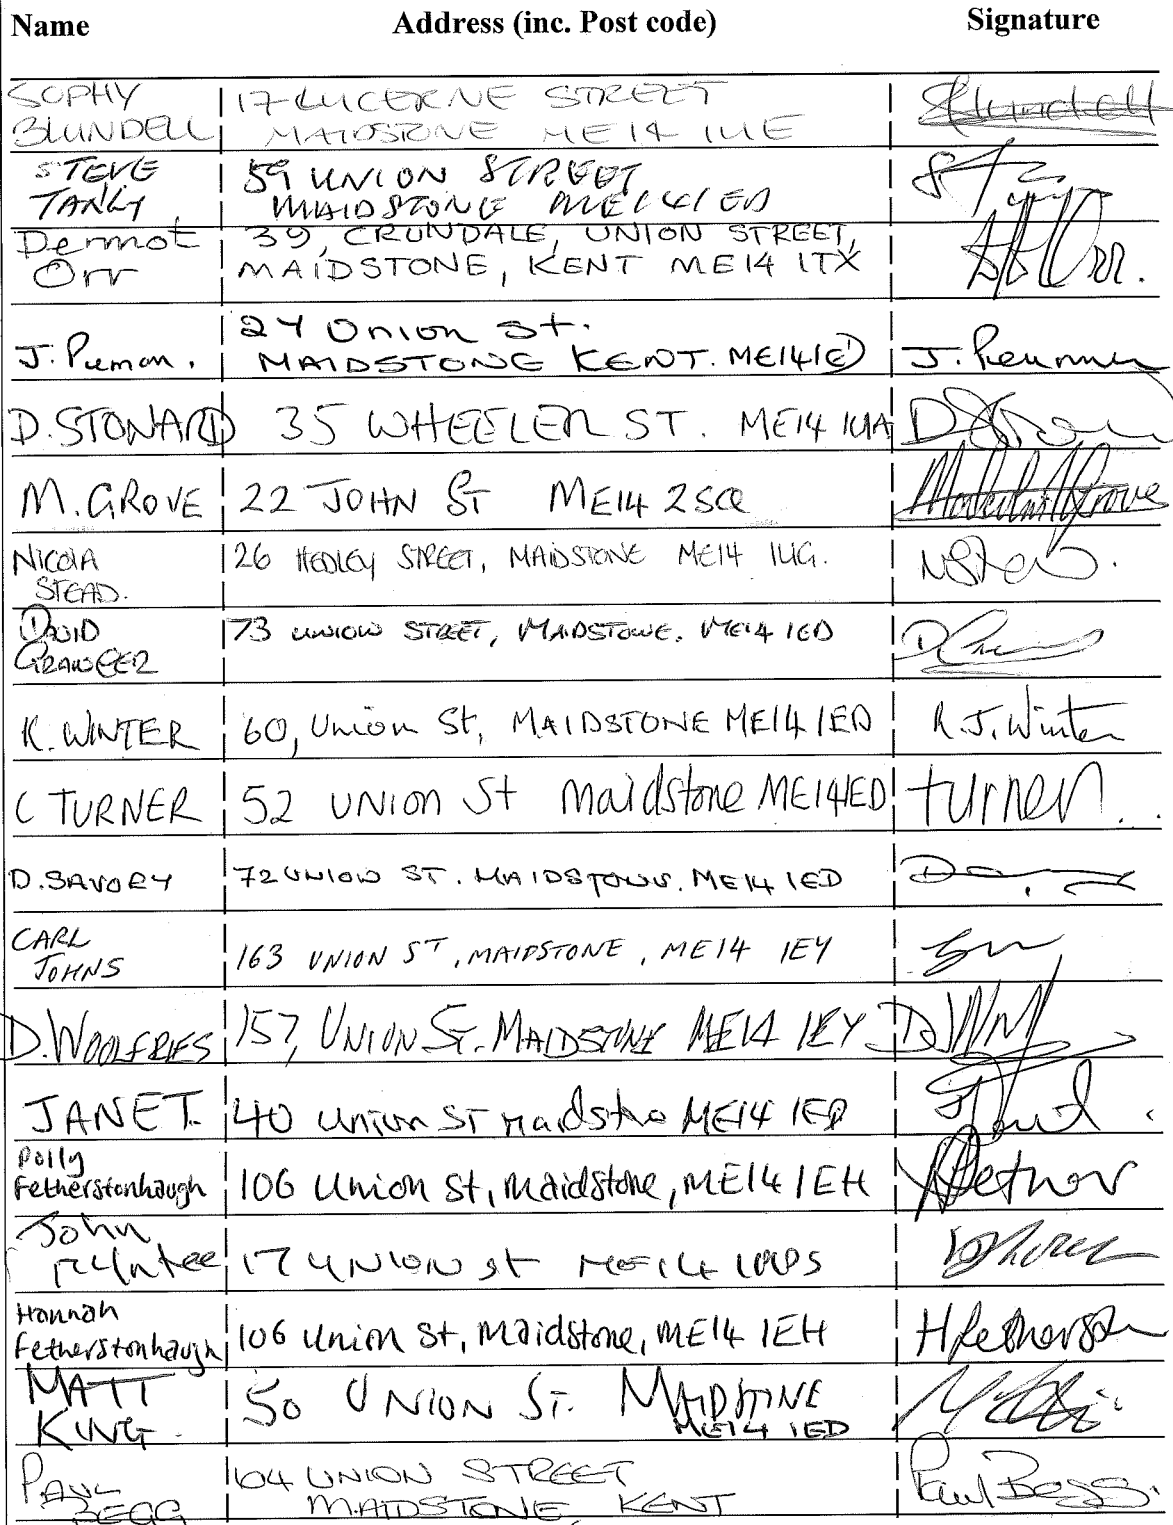 Name Address (inc. Post code) Signature
SOPHY 17 LUCERNE STREET
BLUNDELL MAIDSTONE ME14 1UE SBlundell
STEVE 59 UNION STREET
MAIDSTONE ME14 1ED
Dermot 39, CRUNDALE, UNION STREET,
Orr MAIDSTONE, KENT ME14 1TX Orr.
24 Union St.
J. MAIDSTONE KENT. ME141ED J.
D. STONARD 35 WHEELER ST. ME14 1UA
M. GROVE 22 JOHN St ME14 2SQ Malcolm Grove
NICOLA 26 HEDLEY STREET, MAIDSTONE ME14 1UG.
STEAD.
DAVID 73 UNION STREET, MAIDSTONE. ME14 1ED
GRAINGER
K. WINTER 60, Union St, MAIDSTONE ME14 1ED K.J. Winter
C TURNER 52 UNION St maidstone ME141ED turner.
D. SAVORY 72 UNION ST. MAIDSTONE. ME14 1ED
CARL 163 UNION ST, MAIDSTONE, ME14 1EY
JOHNS
D. WOOLFRIES 157, UNION ST. MAIDSTONE ME14 1EY
JANET. 40 Union ST ME14 1ED
Polly
Fetherstonhaugh 106 Union St, Maidstone, ME14 1EH
John 17 UNION St ME14
Hannah
Fetherstonhaugh 106 Union St, Maidstone, ME14 1EH
MATT 50 UNION ST. MAIDSTONE
KING. ME14 1ED
PAUL 104 UNION STREET
BEGG MAIDSTONE, KENT Paul Begg.